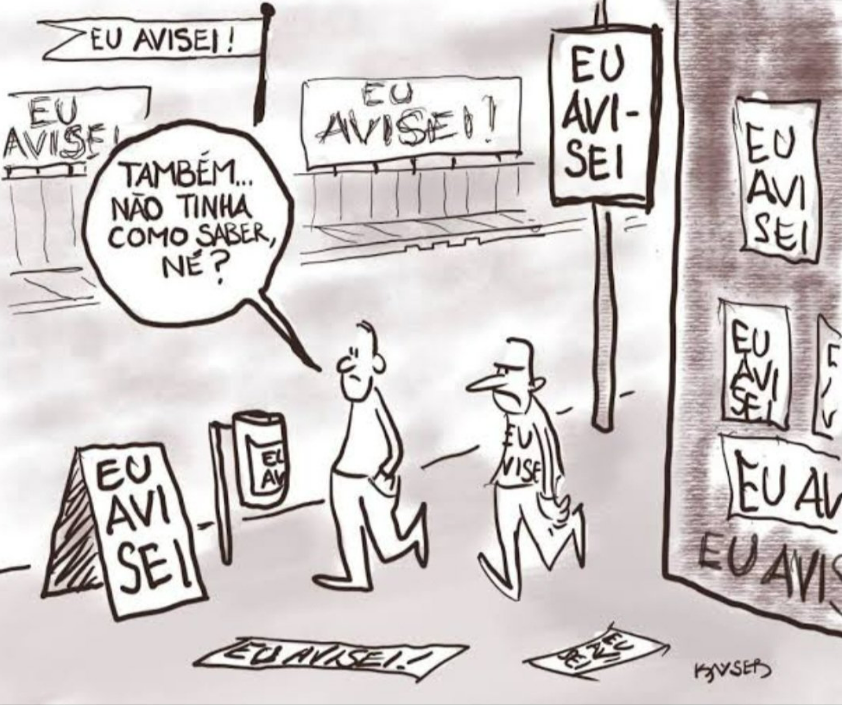 EU AVISEI!
EU
AVISEI
EU
AVISEI!
EU
AVI-
SEI
EU
AVI
SEI
TAMBÉM...
NÃO TINHA
COMO SABER,
NÉ?
EU
AVI
SEI
EU
VISE
EU
AV
EU
AVI
SEI
EU AV
EU AVIS
EU AVISEI!
EU
AVI
SEI
KAYSER